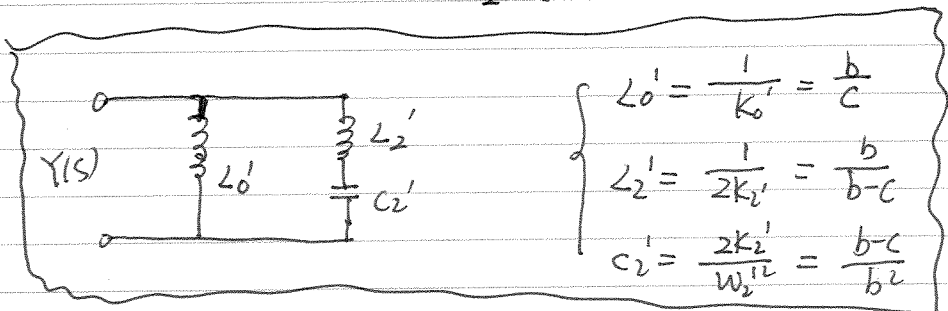 Y(s)
L₀'
L₂'
C₂'
L₀' = 1/K₀' = b/c
L₂' = 1/2K₂' = b/b-c
C₂' = 2K₂'/W₂'² = b-c/b²